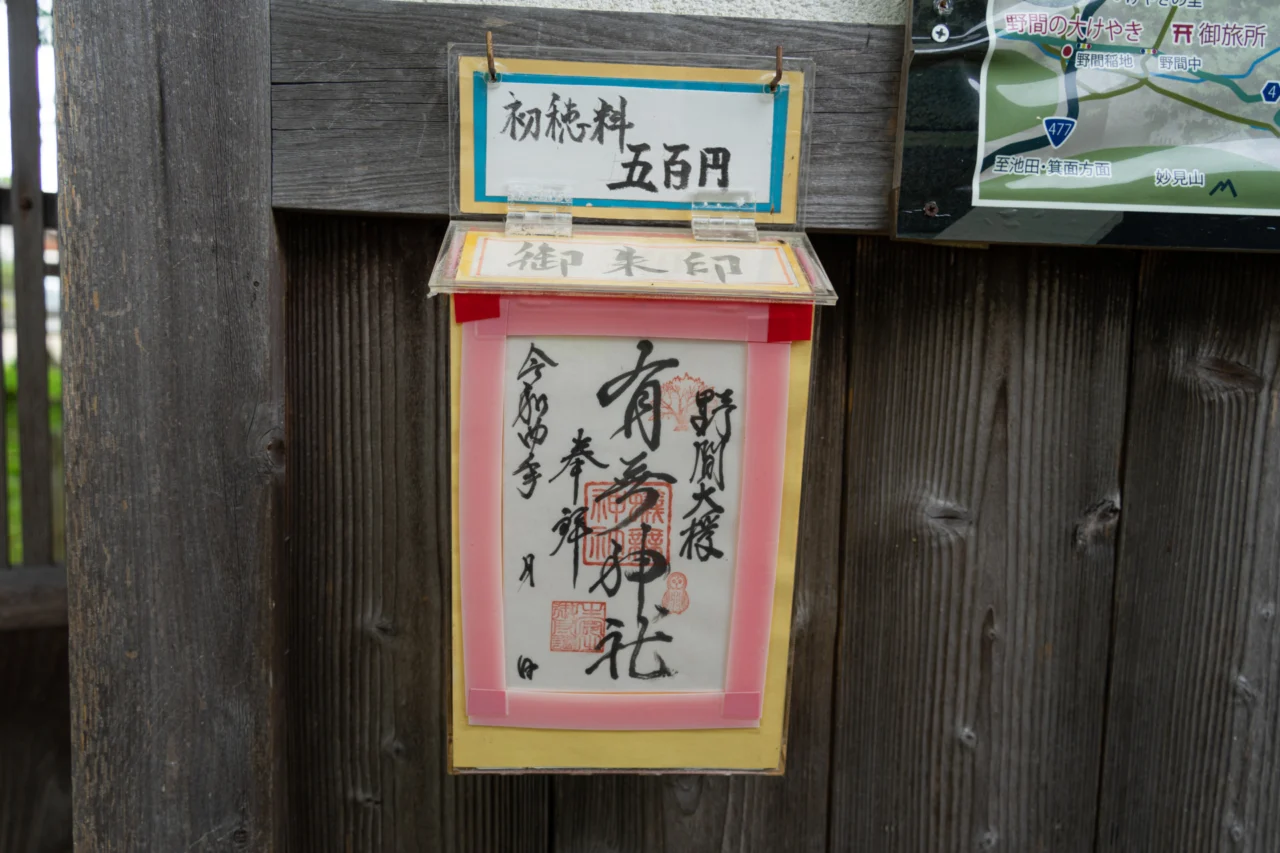 初穂料
五百円
御朱印
野間大櫻
有無神社
奉拝
令和四年 月 日
野間の大けやき
御旅所
野間稲地
野間中
477
4
至池田・箕面方面
妙見山